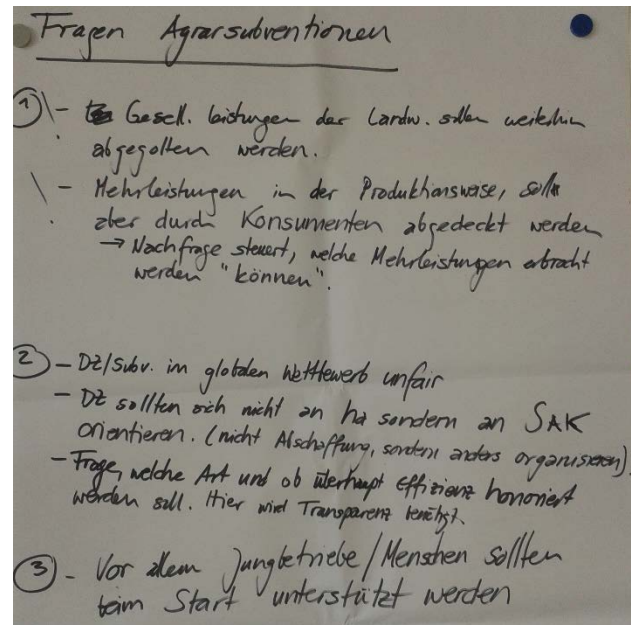 Fragen Agrarsubventionen
1 - Gesell. leistungen der Landw. sollen weiterhin
abgegolten werden.
- Mehrleistungen in der Produktionsweise, sollen
aber durch Konsumenten abgedeckt werden
→ Nachfrage steuert, welche Mehrleistungen erbracht
werden "können".
2 - DZ/Subv. im globalen Wettbewerb unfair
- DZ sollten sich nicht an ha sondern an SAK
orientieren. (nicht Abschaffung, sondern anders organisieren).
- Frage, welche Art und ob überhaupt Effizienz honoriert
werden soll. Hier wird Transparenz benötigt.
3 - Vor allem Jungbetriebe/Menschen sollten
beim Start unterstützt werden